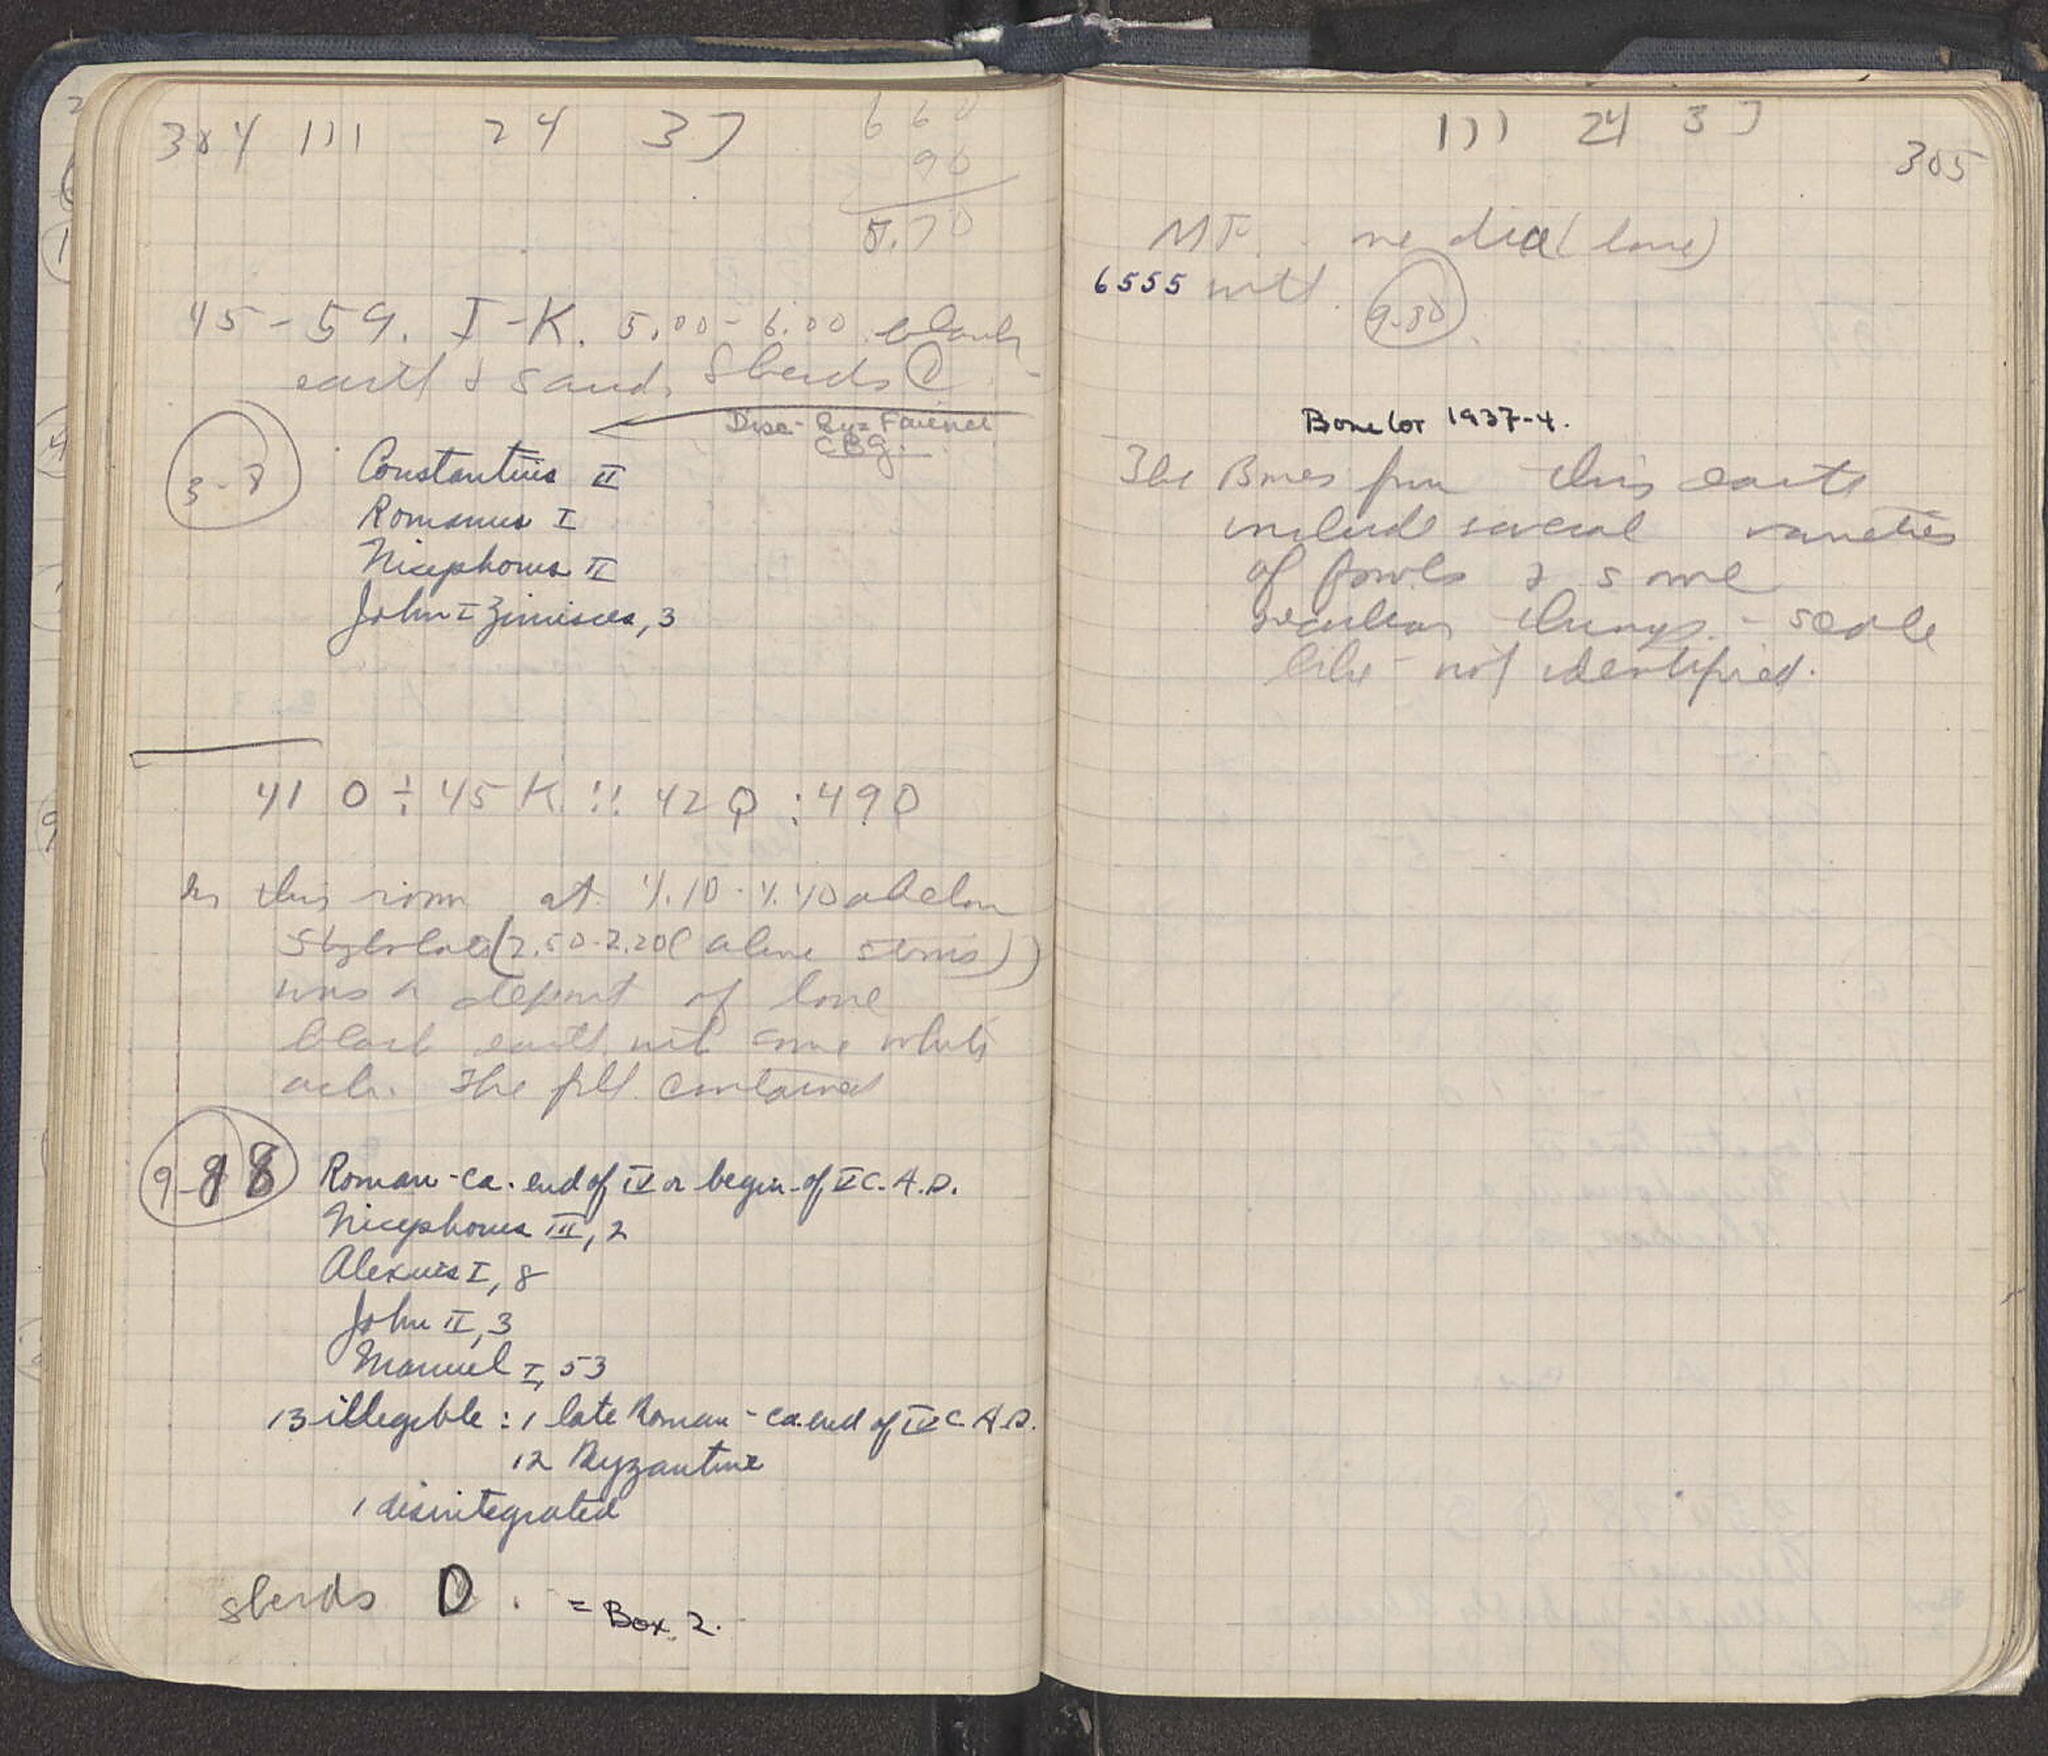 304 III 24 37
660
90
5.70
45-59. I-K. 5.00-6.00 black
earth & sand. Sherds C
Disc- Byz Faience
CBg.
3-8
Constantius II
Romanus I
Nicephorus II
John I Zimisces, 3
41 O ÷ 45 K !! 42 Q : 49 O
In this room at 4.10-4.40 a below
Stylobate (2.50-2.20 ( above stones))
was a deposit of loose
black earth with some white
ash. The fill contained
9-88
Roman - ca. end of IV or begin. of V C. A.D.
Nicephorus III, 2
Alexius I, 8
John II, 3
Manuel I, 53
13 illegible : 1 late Roman - ca. end of IV C. A.D.
12 Byzantine
1 disintegrated
sherds D. = Box 2.
III 24 37
305
MF. one (bone)
6555 with
9-80
Bone lot 1937-4.
The Bones from this earth
include several varieties
of fowls & some
peculiar things - scale
like - not identified.